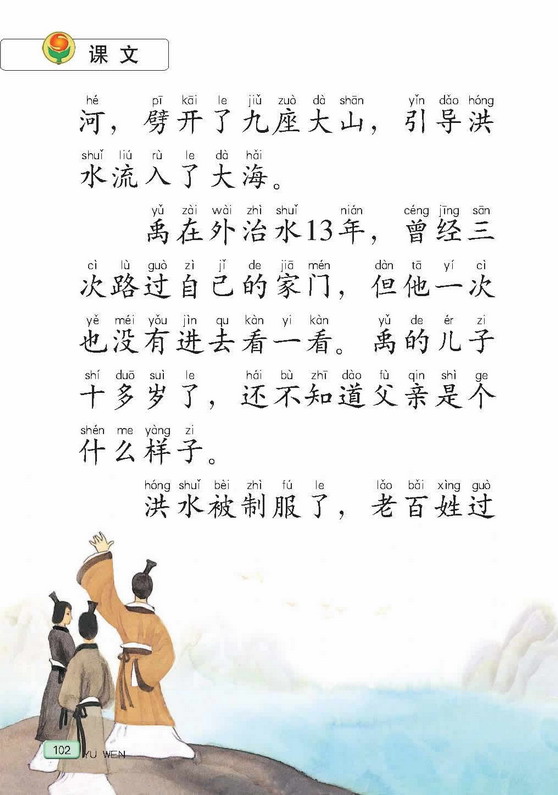 课文
hé pī kāi le jiǔ zuò dà shān yǐn dǎo hóng
河，劈开了九座大山，引导洪
shuǐ liú rù le dà hǎi
水流入了大海。
yǔ zài wài zhì shuǐ nián céng jīng sān
禹在外治水13年，曾经三
cì lù guò zì jǐ de jiā mén dàn tā yí cì
次路过自己的家门，但他一次
yě méi yǒu jìn qu kàn yi kàn yǔ de ér zi
也没有进去看一看。禹的儿子
shí duō suì le hái bù zhī dào fù qin shì ge
十多岁了，还不知道父亲是个
shén me yàng zi
什么样子。
hóng shuǐ bèi zhì fú le lǎo bǎi xìng guò
洪水被制服了，老百姓过
102 YU WEN